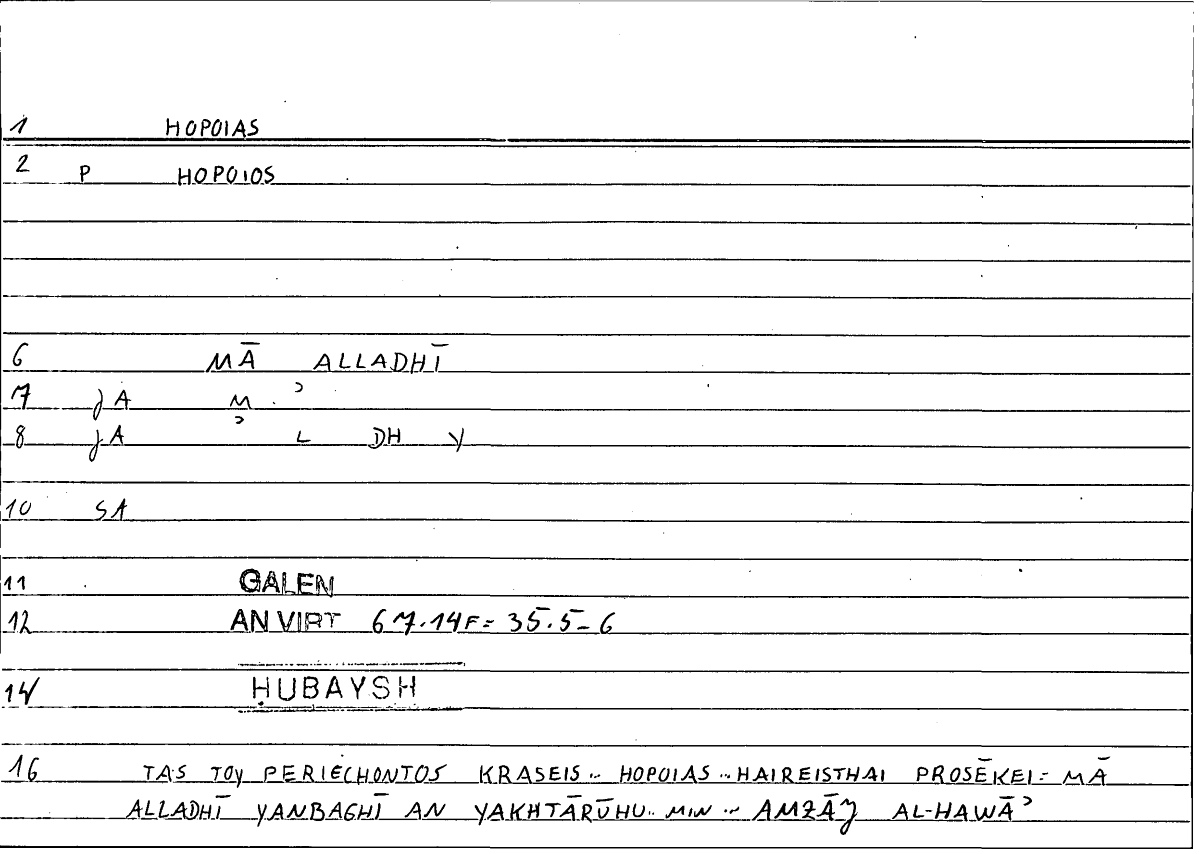 1 HOPOIAS
2 P HOPOIOS
6 MĀ ALLADHĪ
7 JA M ʾ
8 JA ʾ L DH Y
10 SA
11 GALEN
12 AN VIRT 67.14F = 35.5-6
14 ḤUBAYSH
16 TAS TOY PERIECHONTOS KRASEIS .. HOPOIAS .. HAIREISTHAI PROSĒKEI = MĀ
ALLADHĪ YANBAGHĪ AN YAKHTĀRŪHU .. MIN .. AMZĀJ AL-HAWĀʾ